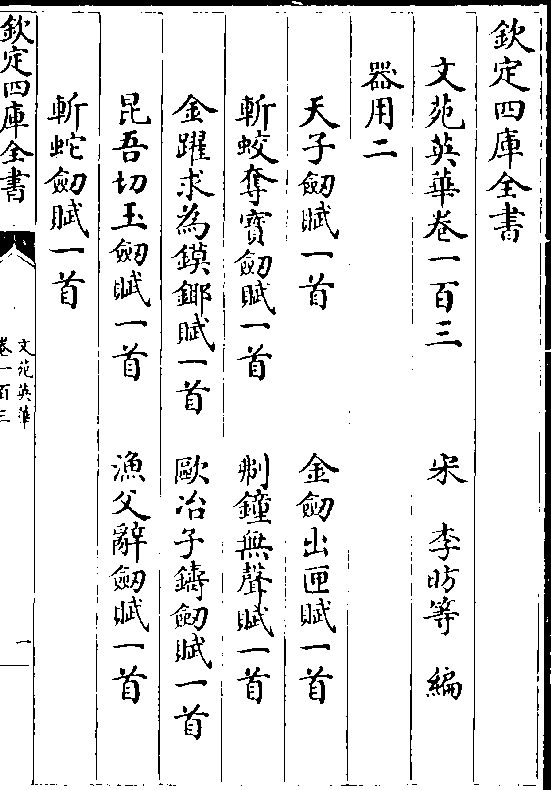 欽定四庫全書
文苑英華卷一百三
宋 李昉等 編
器用二
天子劒賦一首 金劒出匣賦一首
斬蛟奪寶劒賦一首 剸鐘無聲賦一首
金躍求為鏌鎁賦一首 歐冶子鑄劒賦一首
昆吾切玉劒賦一首 漁父辭劒賦一首
斬蛇劒賦一首
欽定四庫全書
文苑英華
卷一百三
一